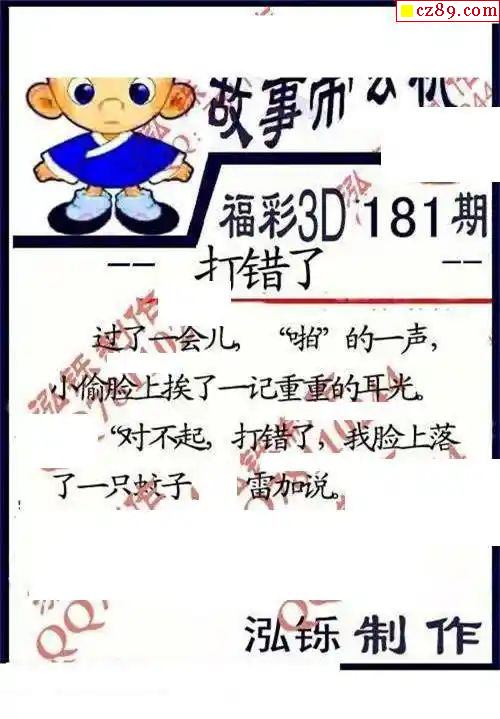 cz89.com
故事
福彩3D 181期
-- 打错了 --
过了一会儿，“啪”的一声，
小偷脸上挨了一记重重的耳光。
“对不起，打错了，我脸上落
了一只蚊子 雷加说。
泓铄制作